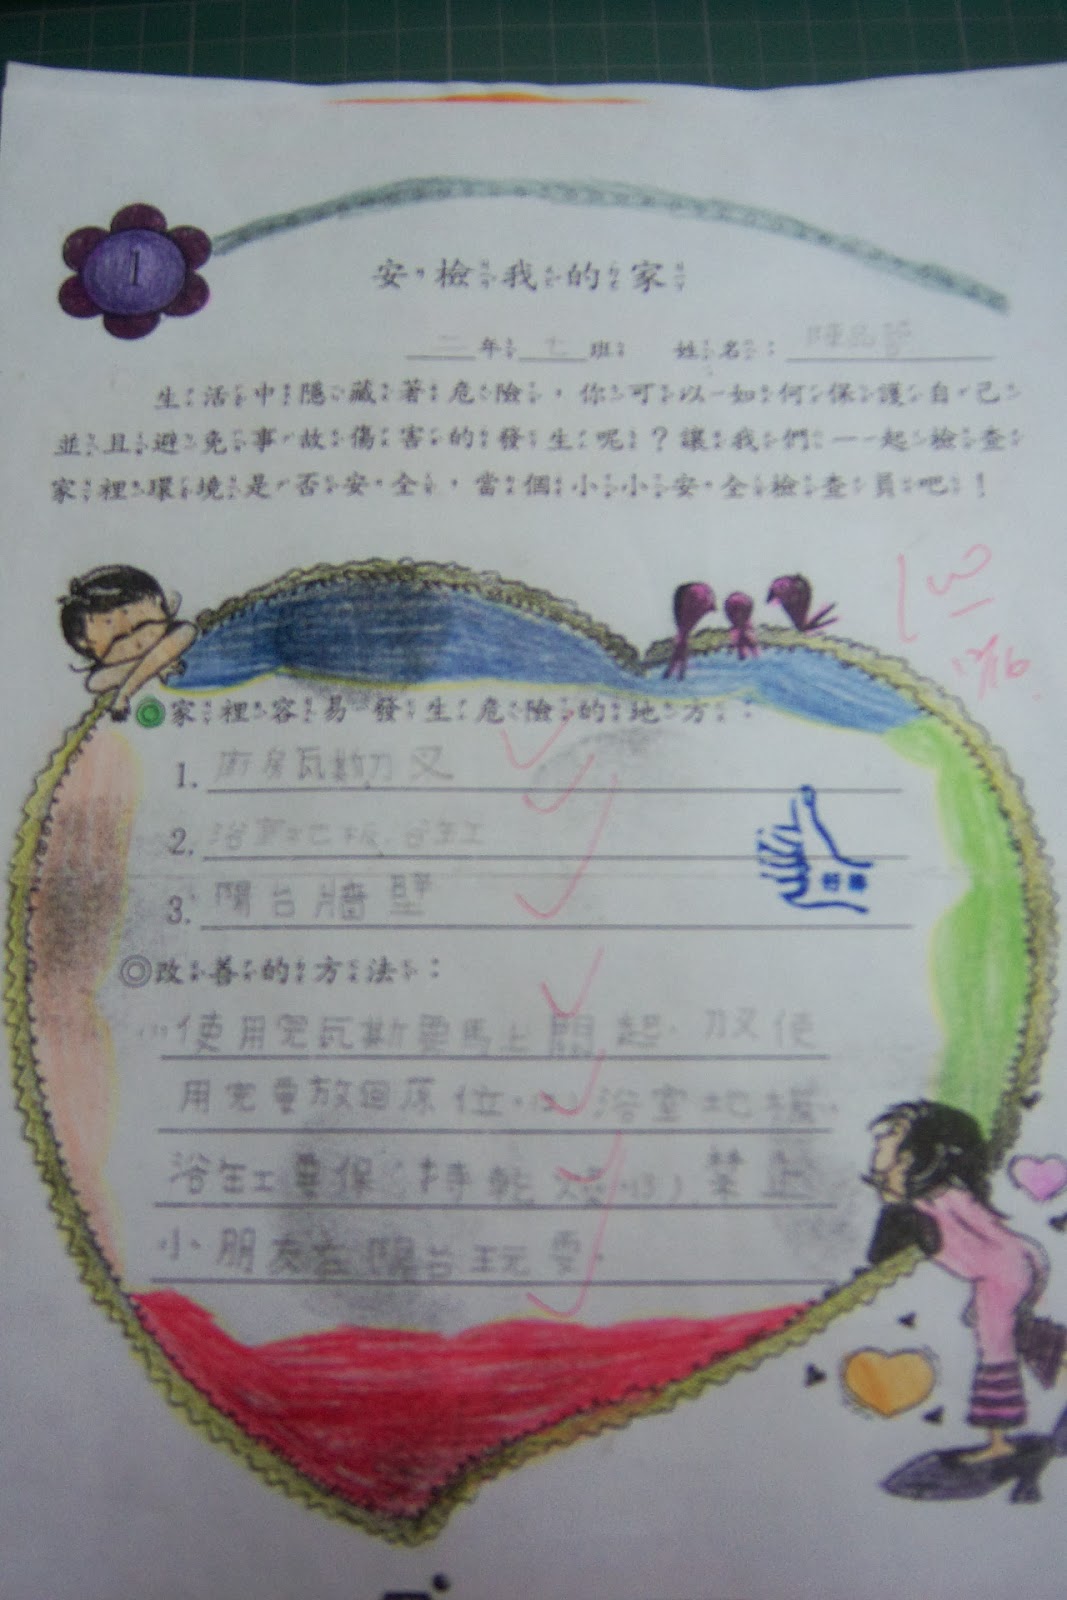 1
安檢我的家
二年七班 姓名：陳品
生活中隱藏著危險，你可以如何保護自己
並且避免事故傷害的發生呢？讓我們一起檢查
家裡環境是否安全，當個小小安全檢查員吧！
100
12/16
◎家裡容易發生危險的地方：
1. 廚房瓦斯刀叉
2. 浴室地板.浴缸
3. 陽台牆壁
◎改善的方法：
(1)使用完瓦斯要馬上關起，刀叉使
用完要放回原位，(2)浴室地板，
浴缸要保持乾燥，(3)禁止
小朋友在陽台玩耍。